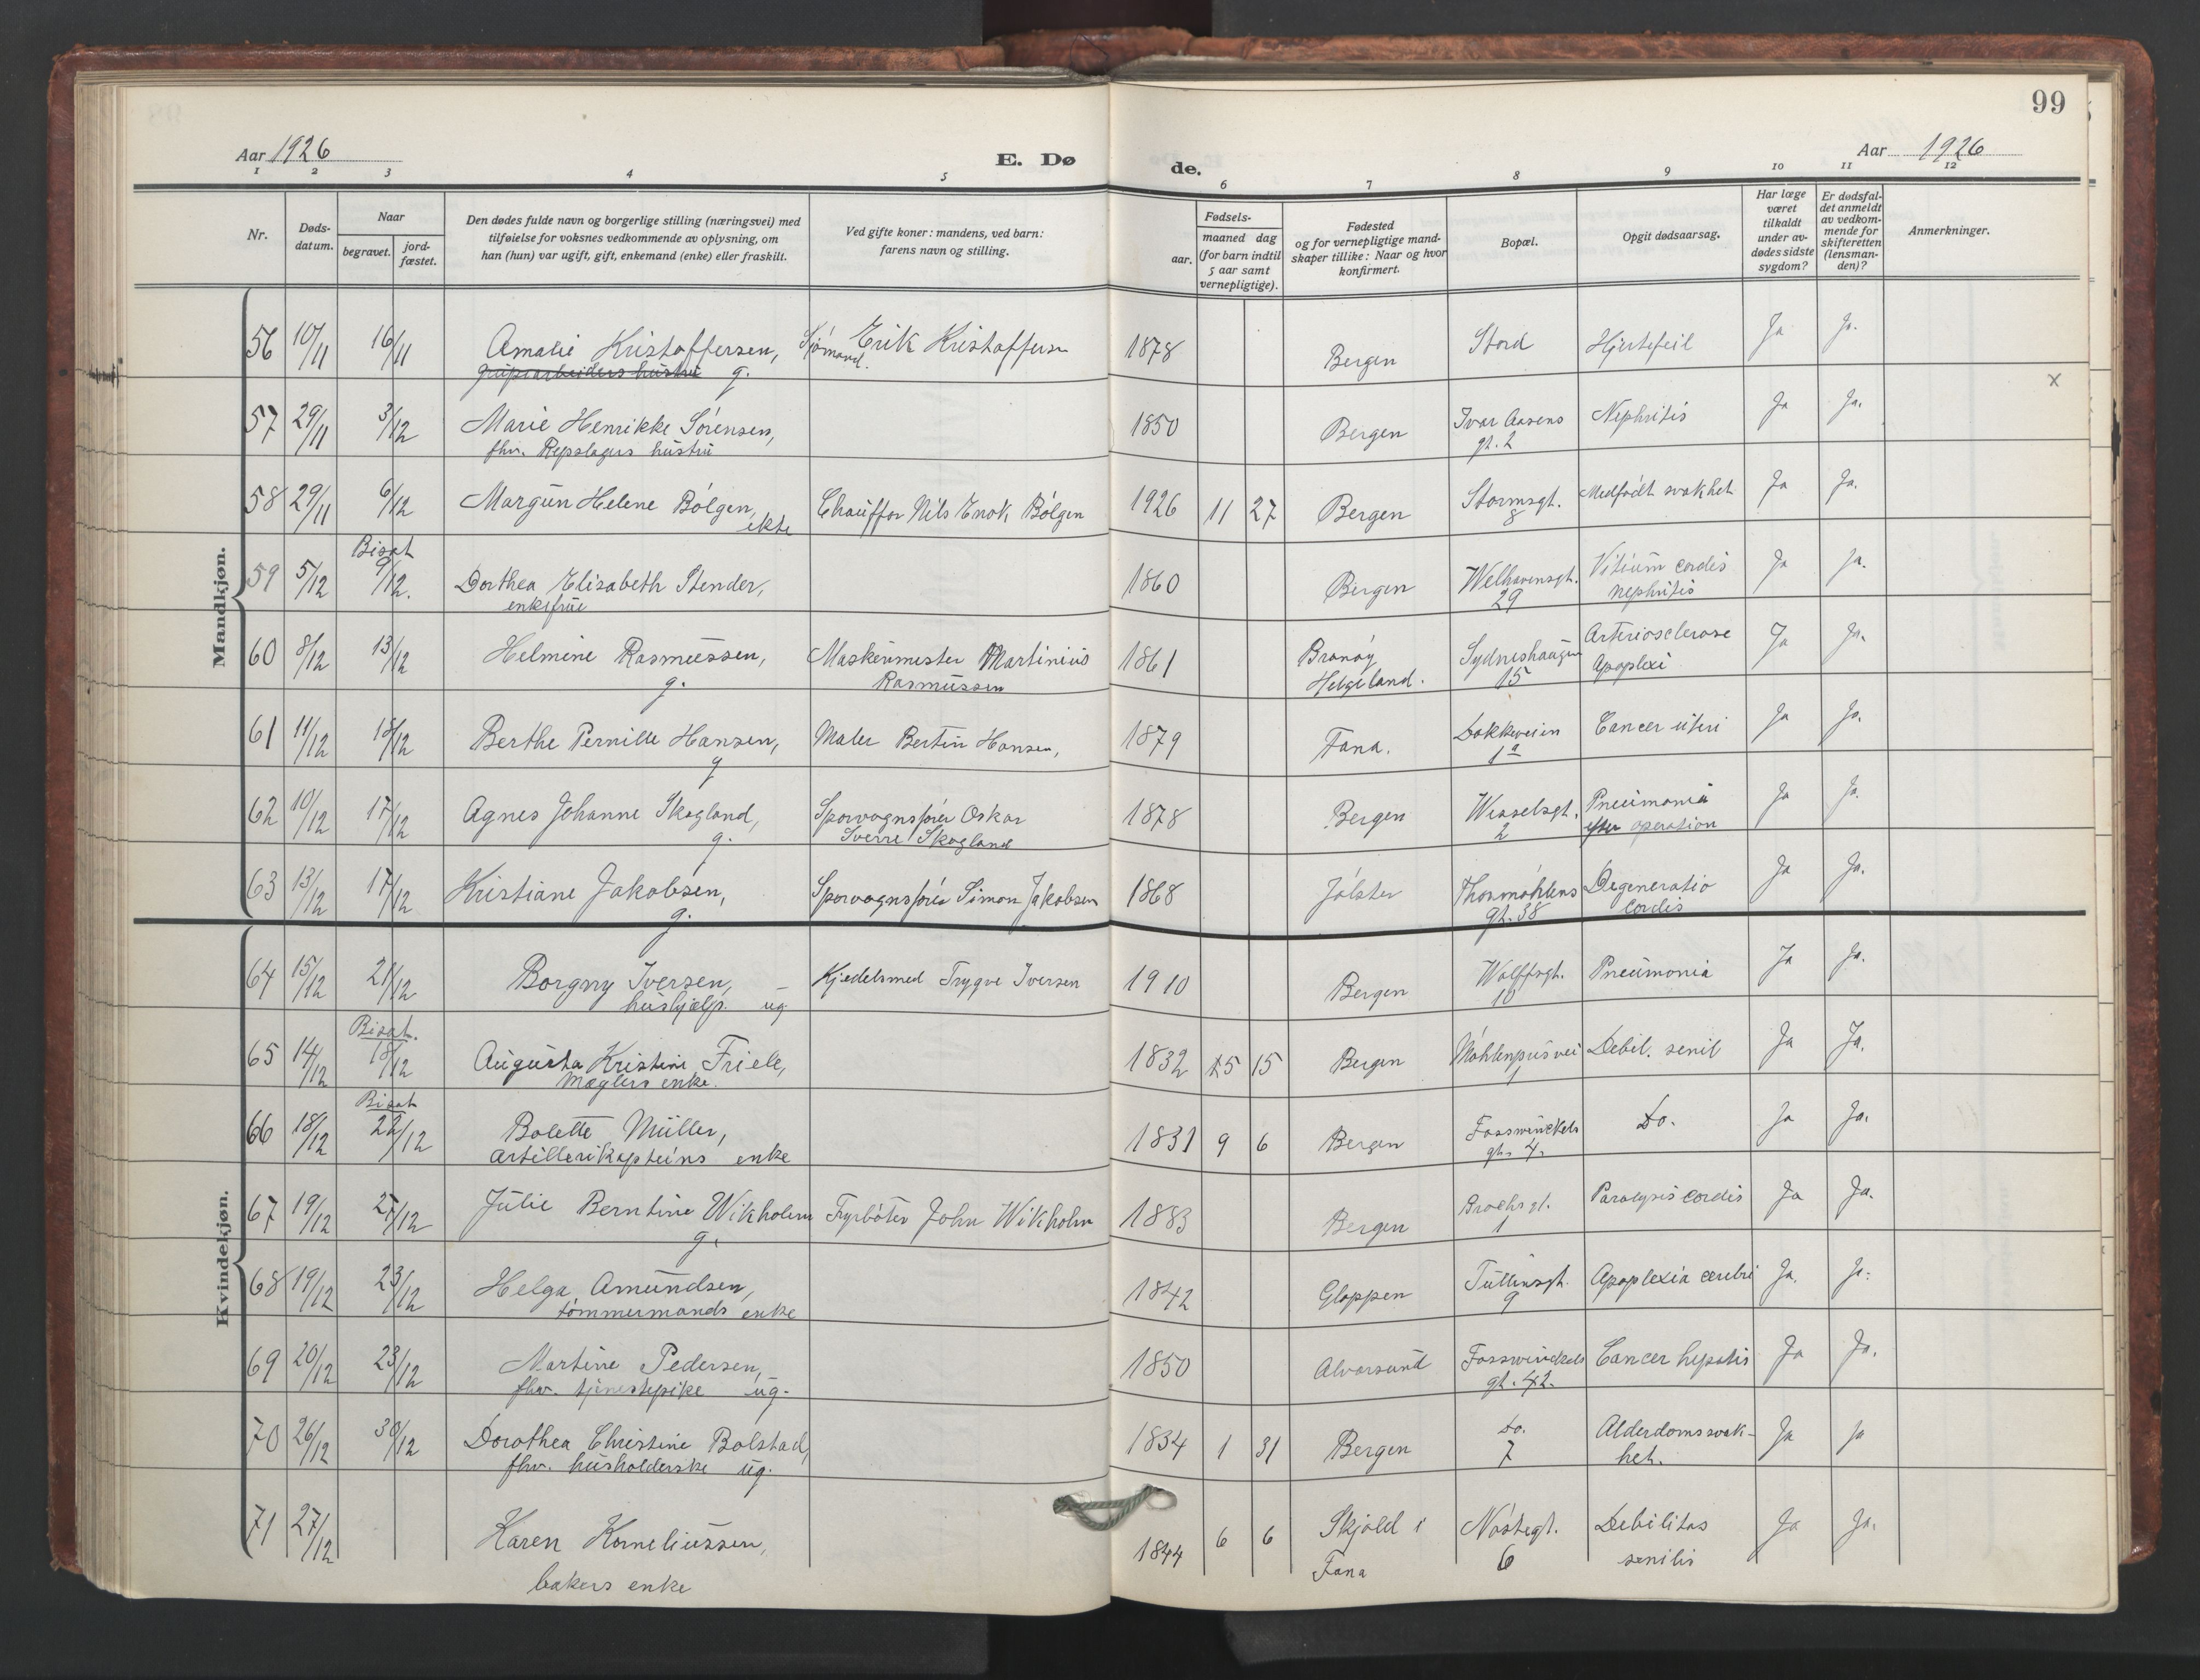 99
Aar 1926
E. Dø de.
Aar 1926
1 2 3 4 5 6 7 8 9 10 11 12
Nr.
Døds-
datum.
Naar
begravet.
jord-
fæstet.
Den dødes fulde navn og borgerlige stilling (næringsvei) med
tilføielse for voksnes vedkommende av oplysning, om
han (hun) var ugift, gift, enkemand (enke) eller fraskilt.
Ved gifte koner: mandens, ved barn:
farens navn og stilling.
Fødsels-
aar.
maaned dag
(for barn indtil
5 aar samt
vernepligtige).
Fødested
og for vernepligtige mand-
skaper tillike: Naar og hvor
konfirmert.
Bopæl.
Opgit dødsaarsag.
Har læge
været
tilkaldt
under av-
dødes sidste
sygdom?
Er dødsfal-
det anmeldt
av vedkom-
mende for
skifteretten
(lensman-
den)?
Anmerkninger.
Mandkjøn.
56 10/11 16/11 Amalie Kristoffersen, Sjømand Erik Kristoffersen 1878 Bergen Stord Hjertefeil Ja Ja.
grubearbeiders hustru g.
x
57 29/11 3/12 Marie Henrikke Sørensen, 1850 Bergen Ivar Aasens Nephritis Ja Ja.
fhv. Repslagers hustru gt. 2
58 29/11 6/12 Margun Helene Bølgen, Chauffør Nils Enok Bølgen 1926 11 27 Bergen Stormsgt. Medfødt svakhet Ja Ja.
ekte 8
Bisat
59 5/12 9/12. Dorthea Elisabeth Stender, 1860 Bergen Welhavensgt. Vitium cordis Ja Ja.
enkefrue 29 nephritis
60 8/12 13/12 Helmine Rasmussen, Maskinmester Martinius 1861 Brønøy Sydneshaugen Arteriosclerose Ja Ja.
g. Rasmussen Helgeland. 15 Apoplexi
61 11/12 18/12 Berthe Pernille Hansen, Maler Bertin Hansen, 1879 Fana. Dokkeveien Cancer uteri Ja Ja.
g 1a
62 10/12 17/12 Agnes Johanne Skogland, Sporvognsfører Oskar 1878 Bergen Wesselsgt. Pneumonia Ja Ja.
g. Sverre Skogland 2 efter operation
63 13/12 17/12 Kristiane Jakobsen, Sporvognsfører Simon Jakobsen 1868 Jølster Thormøhlens Degeneratio Ja Ja.
g. gt. 38 cordis
Kvindekjøn.
64 15/12 21/12 Borgny Iversen, Kjedelsmed Trygve Iversen 1910 Bergen Wolffsgt. Pneumonia Ja Ja.
hushjælp. ug 10
Bisat.
65 14/12 18/12 Augusta Kristine Friele, 1832 5 15 Bergen Møhlenprisvei Debil. senil Ja Ja.
Mæglers enke. 1
Bisat
66 18/12 22/12 Bolette Müller, 1831 9 6 Bergen Fosswinckels Do. Ja Ja.
artillerikapteins enke gt. 4.
67 19/12 27/12 Julie Berntine Wikholm Fyrbøter John Wikholm 1883 Bergen Brochs gt. Paralysis cordis Ja Ja.
g. 1
68 19/12 23/12 Helga Amundsen, 1842 Gloppen Tullinsgt. Apoplexia cerebri Ja. Ja.
tømmermands enke 9
69 20/12 23/12 Martine Pedersen, 1850 Alversund Fosswinckels Cancer hepatis Ja Ja.
fhv. tjenestepike ug. gt. 42.
70 26/12 30/12 Dorothea Christine Bolstad, 1834 1 31 Bergen Do. Alderdomssvak- Ja Ja
fhv. husholderske ug. 7 het.
71 27/12 Karen Korneliussen, 1844 6 6 Skjold i Nøstegt. Debilitas Ja Ja.
bakers enke Fana 6 senilis